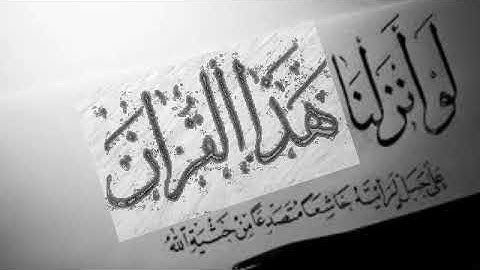 لَوْ أَنْزَلْنَا هَذَا الْقُرْآنَ
عَلَى جَبَلٍ لَرَأَيْتَهُ خَاشِعًا مُتَصَدِّعًا مِنْ خَشْيَةِ اللَّهِ